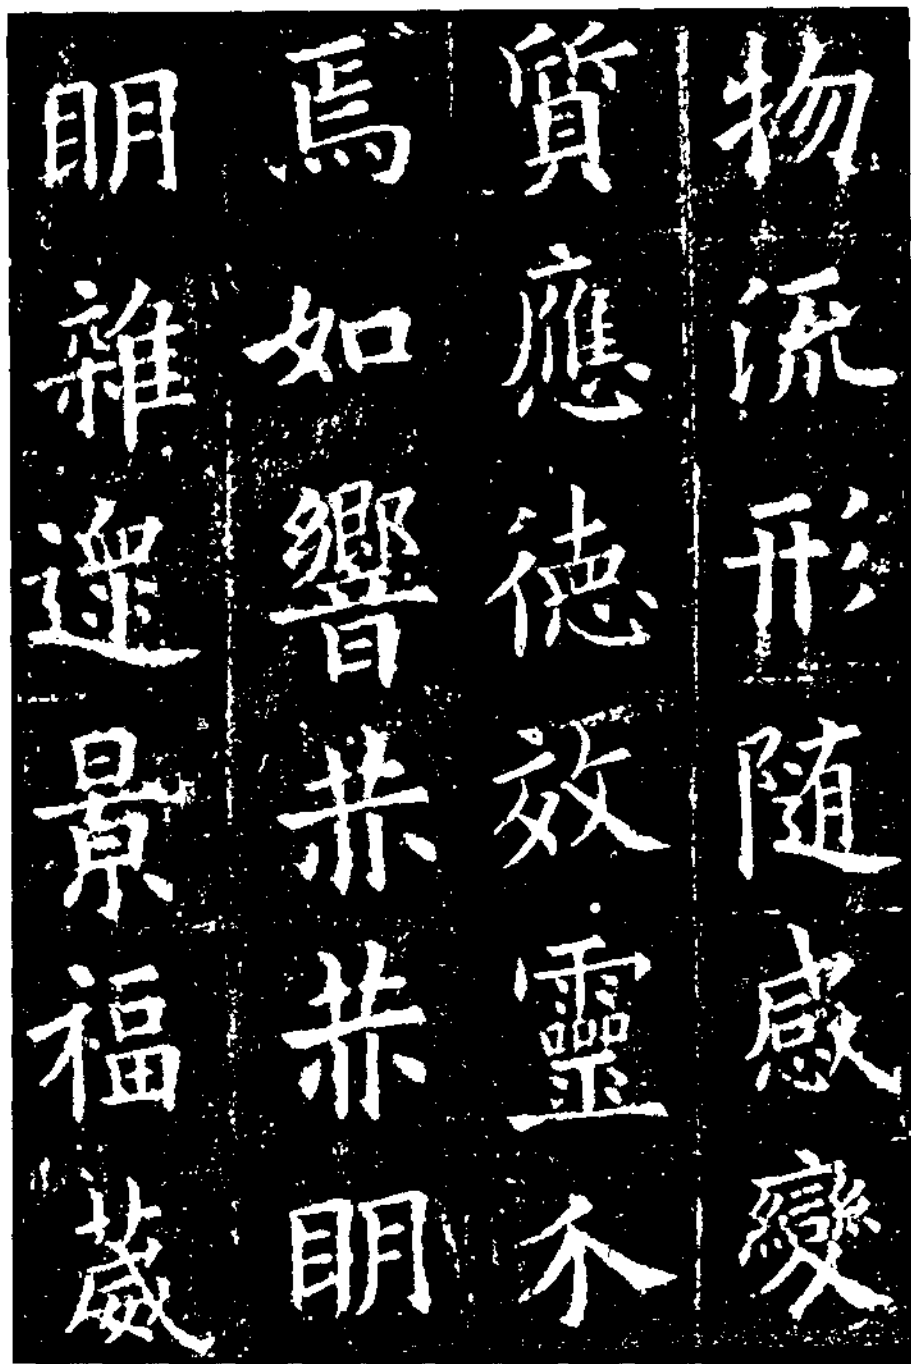 物流形随感變
質應徳效靈介
焉如響赫赫眀
眀雜遝景福葳